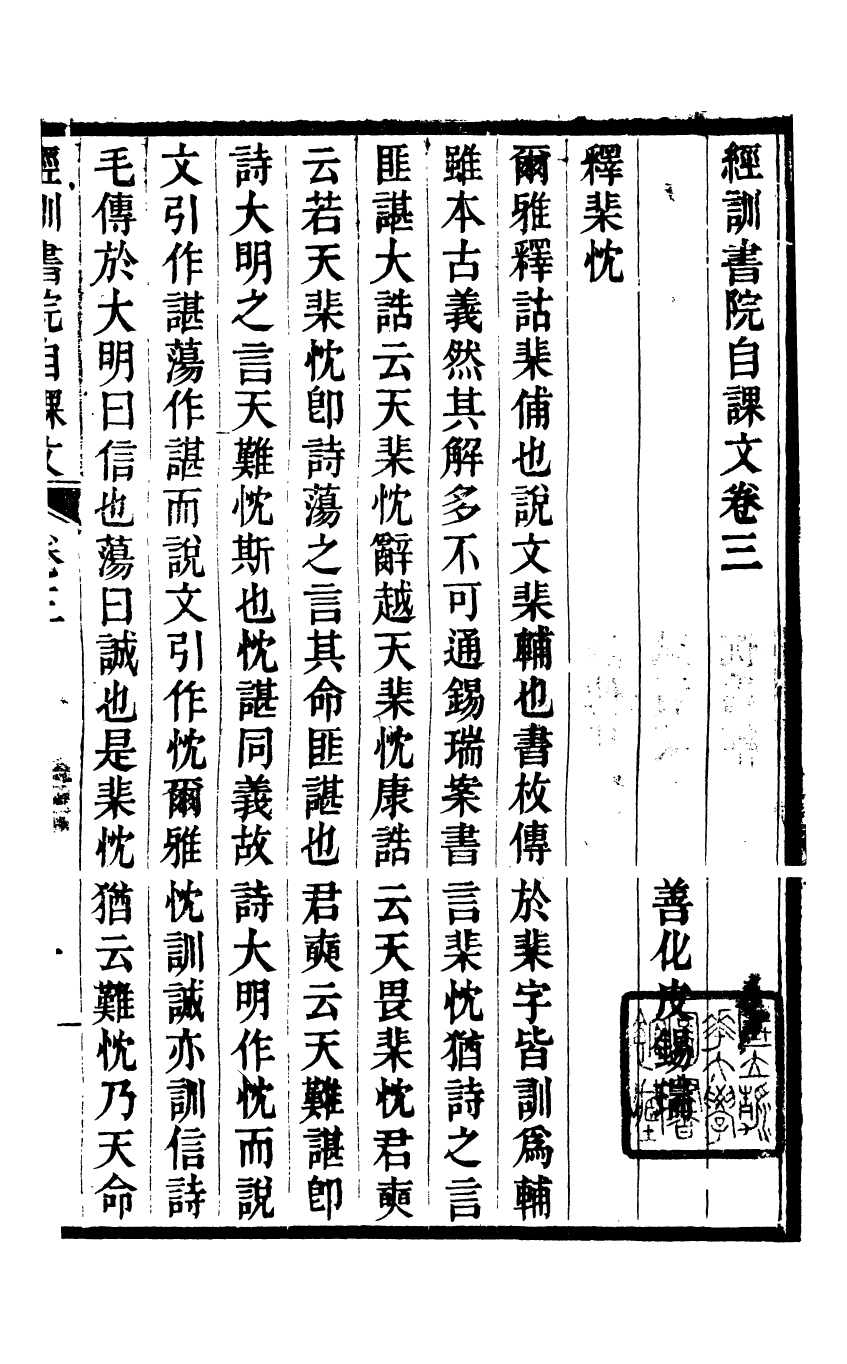 經訓書院自課文卷三
善化皮錫瑞
釋棐忱
爾雅釋詁棐俌也說文棐輔也書枚傳於棐字皆訓爲輔
雖本古義然其解多不可通錫瑞案書言棐忱猶詩之言
匪諶大誥云天棐忱辭越天棐忱康誥云天畏棐忱君奭
云若天棐忱卽詩蕩之言其命匪諶也君奭云天難諶卽
詩大明之言天難忱斯也忱諶同義故詩大明作忱而說
文引作諶蕩作諶而說文引作忱爾雅忱訓誠亦訓信詩
毛傳於大明曰信也蕩曰誠也是棐忱猶云難忱乃天命
經訓書院自課文
卷三
一